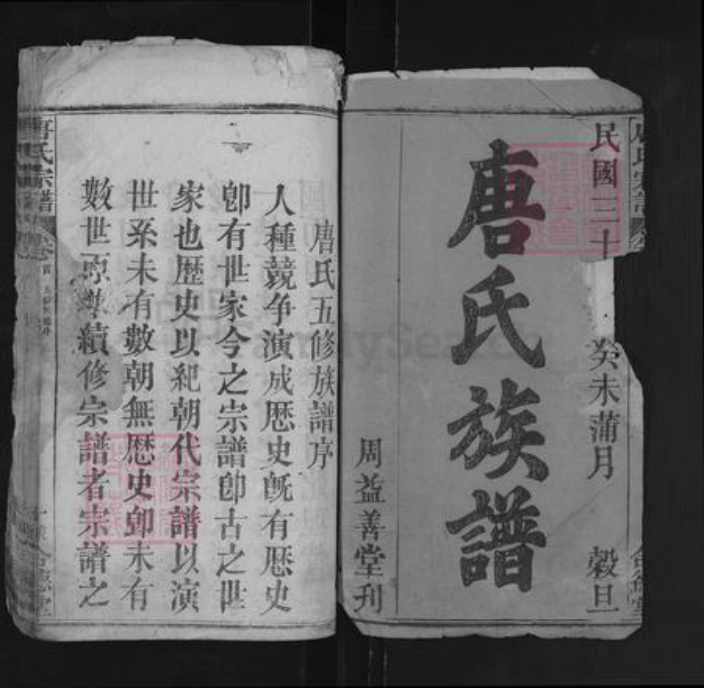 民國三十 癸未蒲月 穀旦
唐氏族譜
周益善堂刊
唐氏五修族譜序
人種競争演成歷史旣有歷史
卽有世家今之宗譜卽古之世
家也歷史以紀朝代宗譜以演
世系未有數朝無歷史卽未有
數世 續修宗譜者宗譜之
唐氏宗譜
FamilySearch